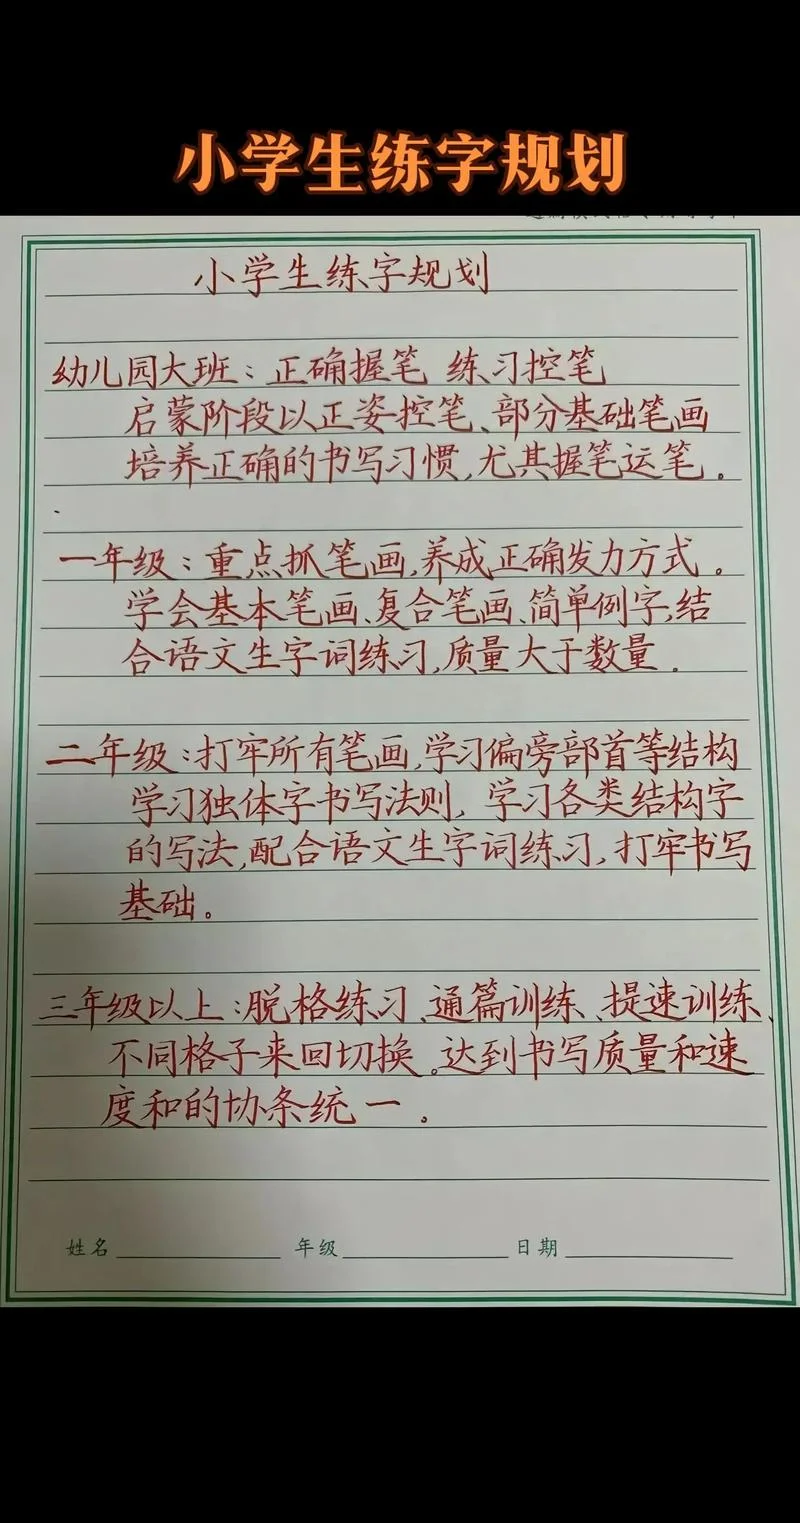 小学生练字规划
小学生练字规划
幼儿园大班：正确握笔 练习控笔
启蒙阶段以正姿控笔、部分基础笔画
培养正确的书写习惯,尤其握笔运笔。
一年级：重点抓笔画,养成正确发力方式。
学会基本笔画、复合笔画、简单例字,结
合语文生字词练习,质量大于数量。
二年级：打牢所有笔画,学习偏旁部首等结构
学习独体字书写法则, 学习各类结构字
的写法,配合语文生字词练习,打牢书写
基础。
三年级以上：脱格练习、通篇训练、提速训练、
不同格子来回切换。达到书写质量和速
度和的协条统一。
姓名 年级 日期